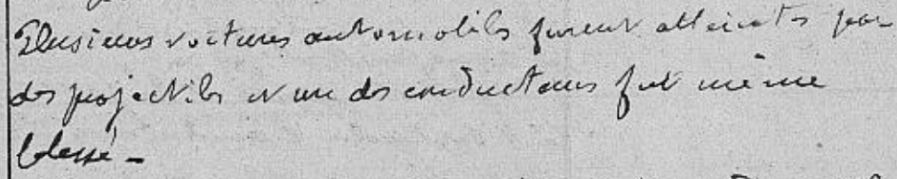 Plusieurs voitures automobiles furent atteints par
des projectiles et un des conducteurs fut même
blessé -